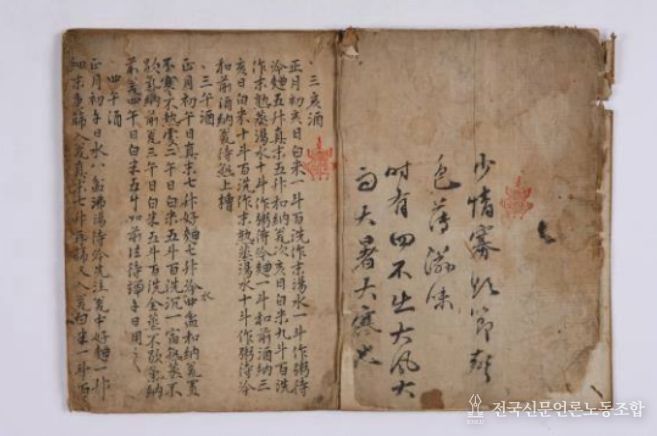 少情寡欲節聲
色薄滋味
時有四不出大風大
雨大暑大寒也
三亥酒
正月初亥日白米一斗百洗作末湯水一斗作粥待
冷麯五升真末五升和納瓮次亥日白米九斗百洗
作末熟蒸湯水十斗作粥待冷麯一斗和前酒納三
亥日白米十斗百洗作末熟蒸湯水十斗作粥待冷
和前酒納瓮待熟上槽
三午酒
正月初午日真末七升好麯七升冷水四盆和納瓮置
不寒不熱處二午日白米五斗百洗沉一宿熟蒸不
歇氣納前瓮三午日白米五斗百洗全蒸不歇氣納
前瓮四午日白米五斗如前法待端午日用之
四午酒
正月初午日水八盆沸湯待冷先注瓮中好麯一斗
細末重篩入瓮真末七升再篩又入瓮白米一斗百
전국신문언론노동조합